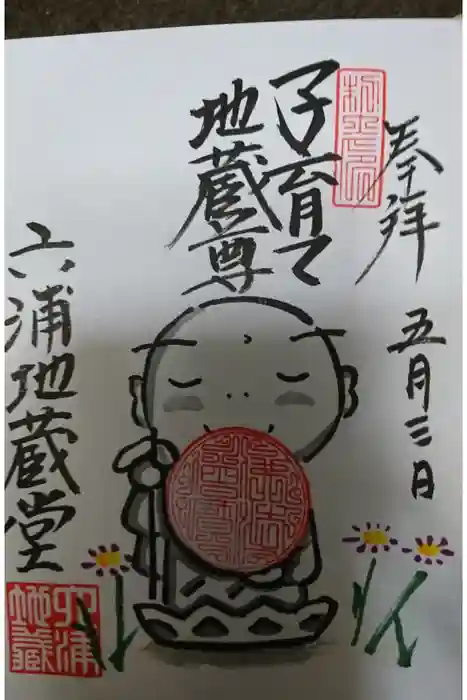 奉拝
五月三日
子育て
地蔵尊
六浦地蔵堂
六浦
地蔵